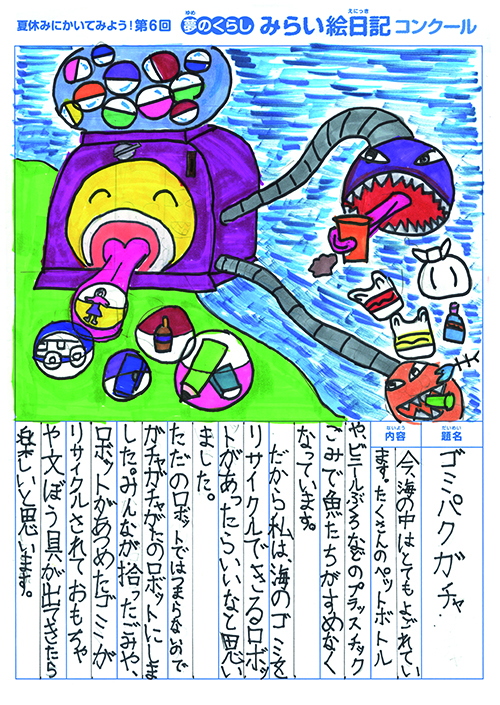 夏休みにかいてみよう！第6回 夢のくらし みらい絵日記コンクール
ゆめ
えにっき
だいめい
題名
ゴミパクガチャ
ないよう
内容
今、海の中はとてもよごれてい
ます。たくさんのペットボトル
や、ビニールぶくろなどのプラスチック
ごみで魚たちがすめなく
なっています。
だから私は海のゴミを
リサイクルできるロボッ
トがあったらいいなと思い
ました。
ただのロボットではつまらないので
ガチャガチャがたのロボットにしま
した。みんなが拾ったゴミや、
ロボットがあつめたゴミが
リサイクルされておもちゃ
や文ぼう具が出てきたら
楽しいと思います。